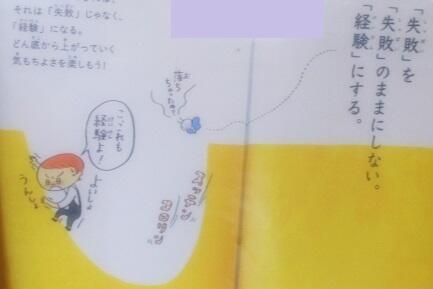 「失敗」を
「失敗」のままにしない。
「経験」にする。
それは「失敗」じゃなく、
「経験」になる。
どん底から上がっていく
気もちよさを楽しもう！
落ち
ちゃったの?
こ、これも
経験よ！
よいしょ
うんしょ